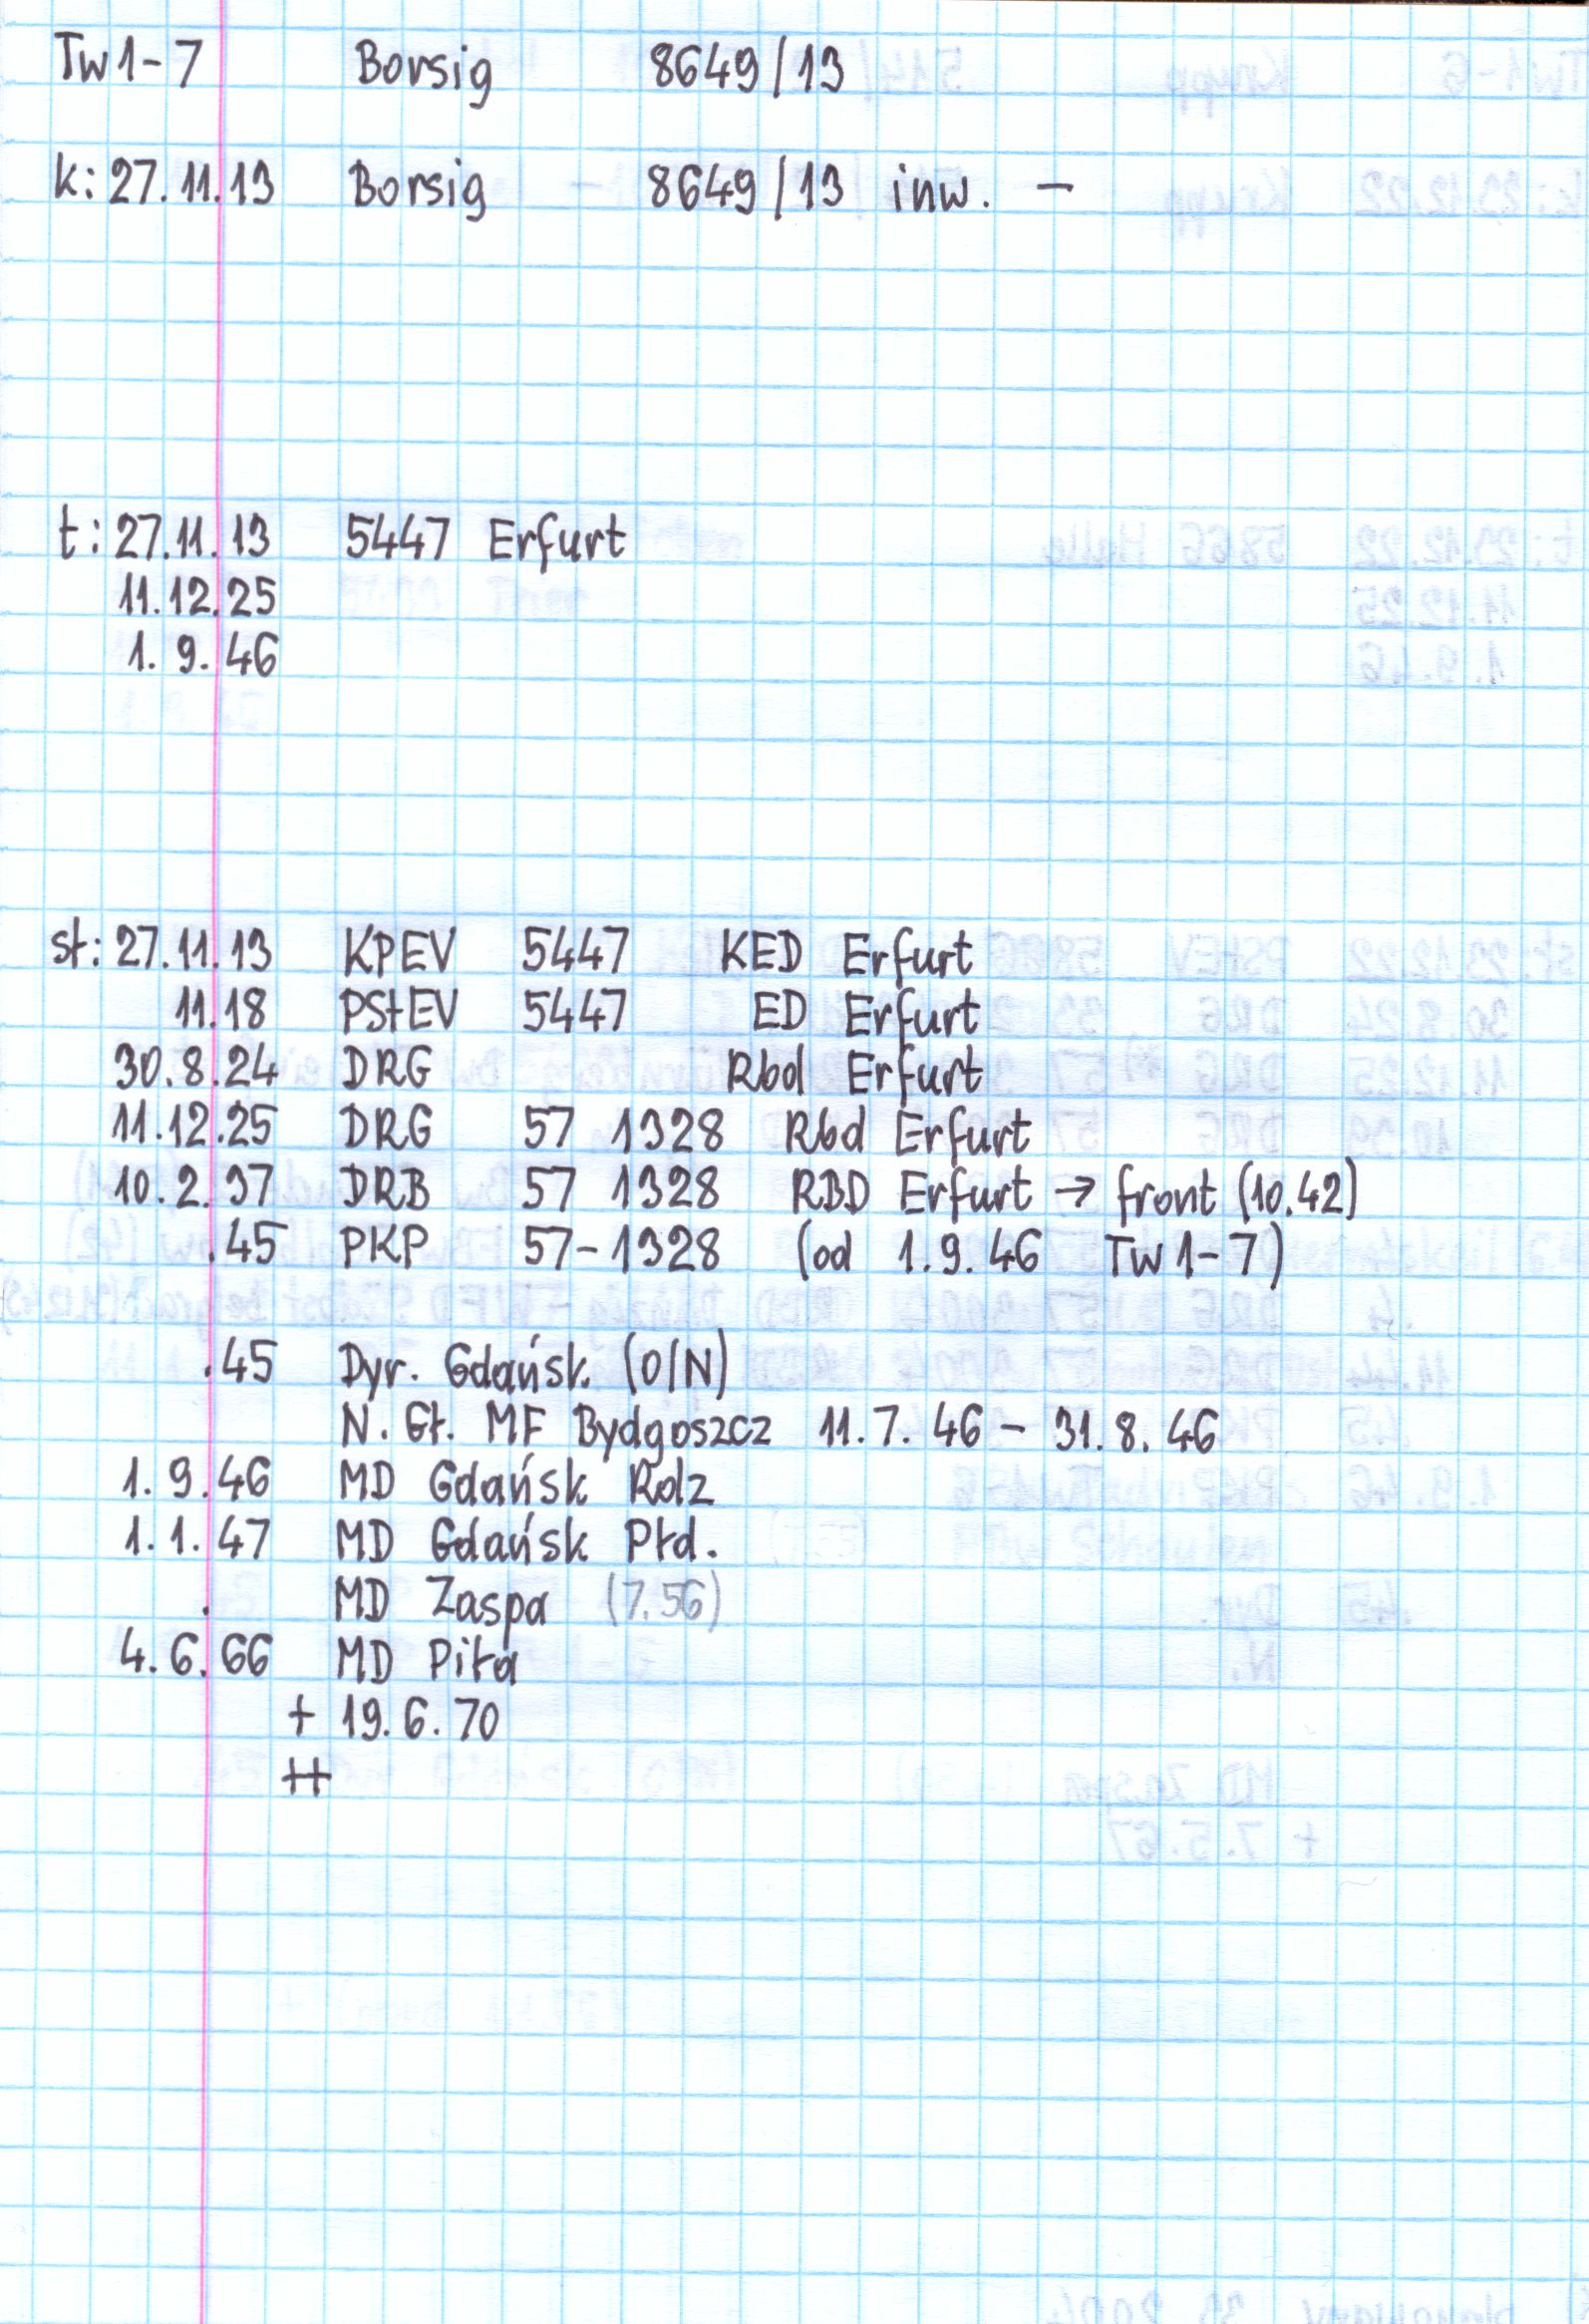 Tw1-7 Borsig 8649/13
k: 27.11.13 Borsig 8649/13 inw. –
t: 27.11.13 5447 Erfurt
11.12.25
1.9.46
st: 27.11.13 KPEV 5447 KED Erfurt
11.18 PStEV 5447 ED Erfurt
30.8.24 DRG Rbd Erfurt
11.12.25 DRG 57 1328 Rbd Erfurt
10.2.37 DRB 57 1328 RBD Erfurt → front (10.42)
.45 PKP 57-1328 (od 1.9.46 Tw1-7)
.45 Dyr. Gdańsk (O/N)
N. Gł. MF Bydgoszcz 11.7.46 – 31.8.46
1.9.46 MD Gdańsk Rdz
1.1.47 MD Gdańsk Płd.
. MD Zaspa (7.56)
4.6.66 MD Piła
+ 19.6.70
++